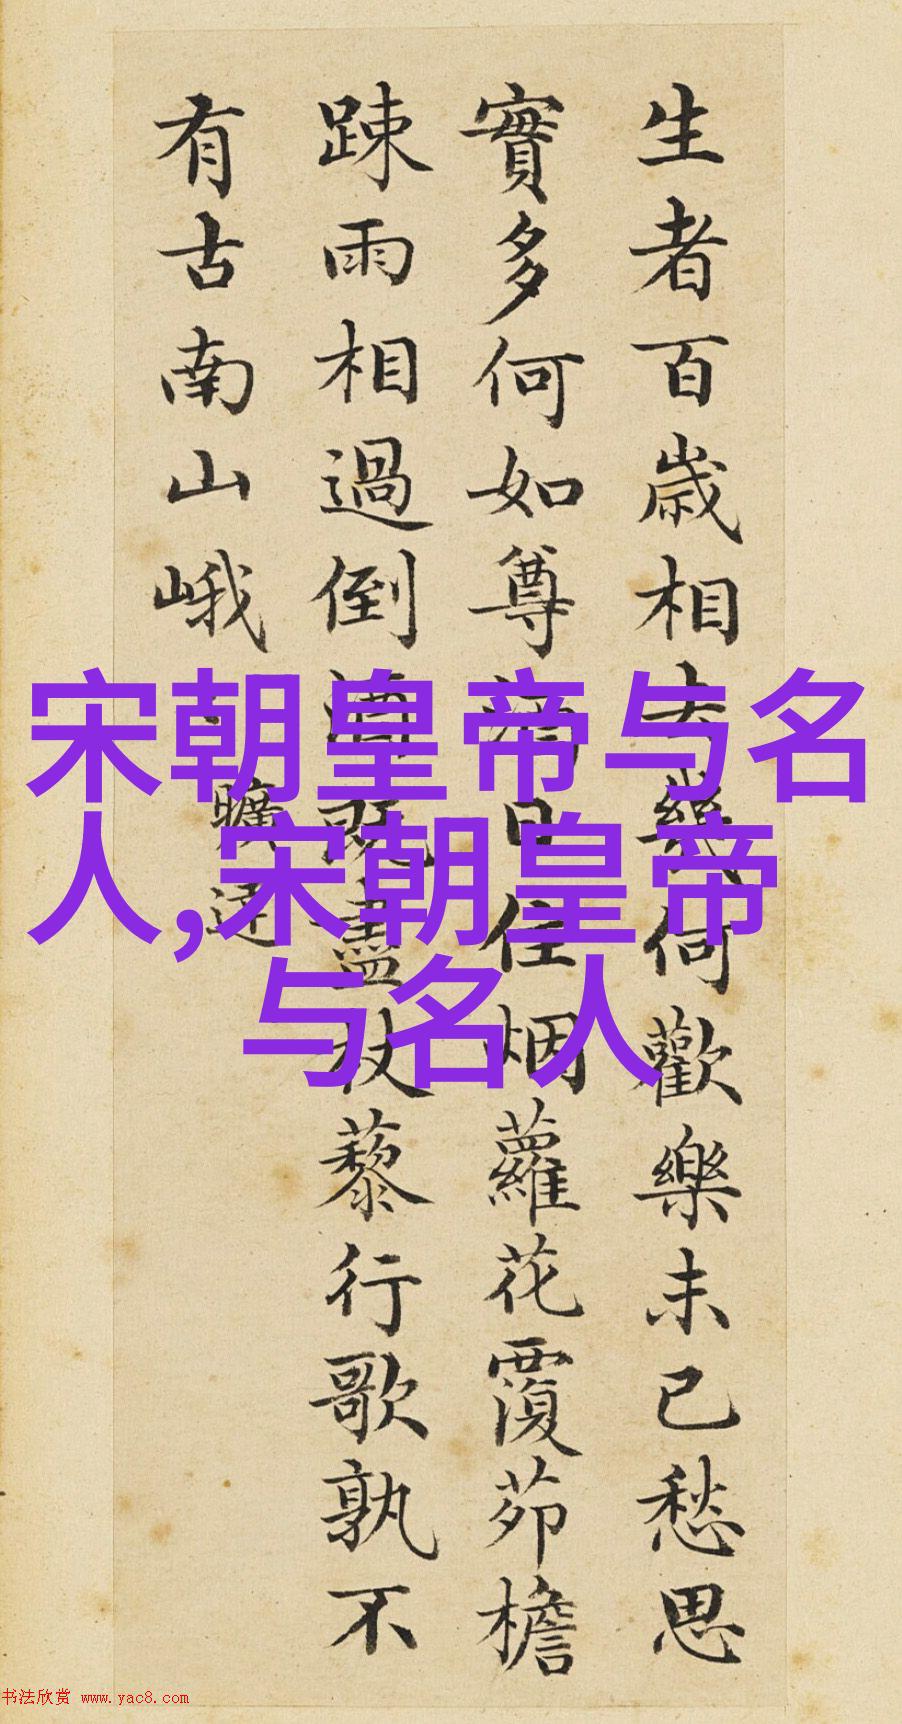 生者百歲相去幾何歡樂未已愁思
實多何如尊酒日住烟蘿花覆茆檐
踈雨相過倒酒既盡杖藜行歌孰不
有古南山峨
曠達
宋朝皇帝与名
人,宋朝皇帝
与名人
书法欣赏 www.yac8.com